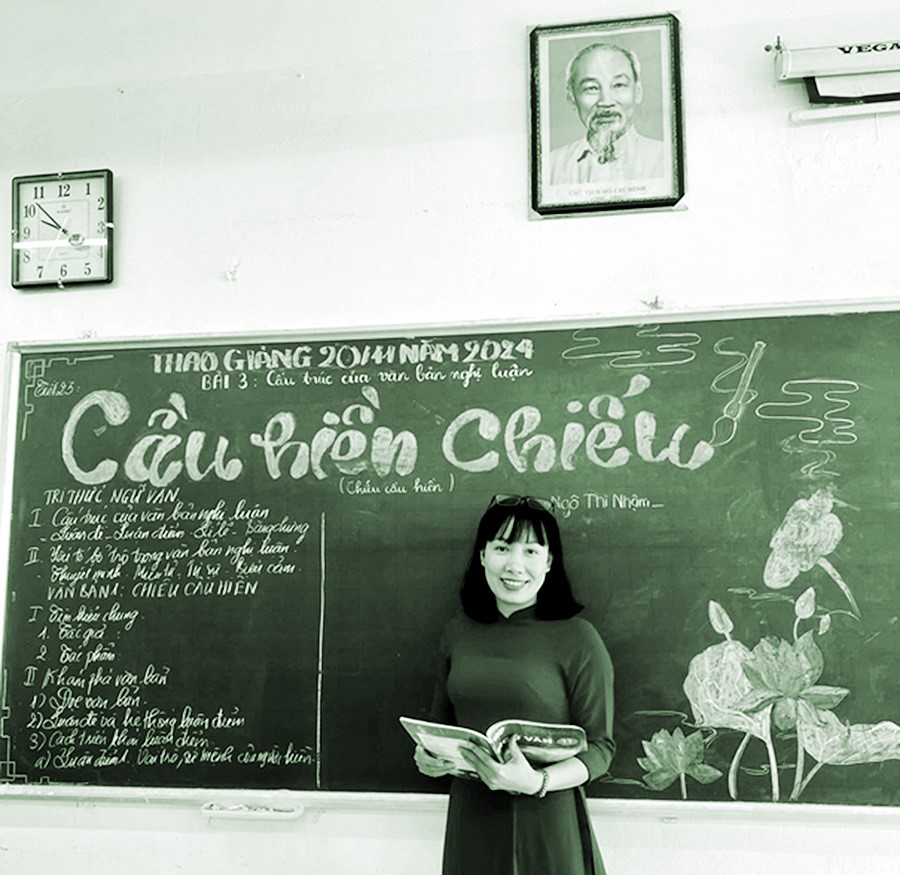 VEGA
CHỦ TỊCH HỒ CHÍ MINH
11 12 1
10 2
9 3
8 4
7 6 5
THAO GIẢNG 20/11 NĂM 2024
Tiết 23:
BÀI 3: Cấu trúc của văn bản nghị luận
Cầu hiền chiếu
(Chiếu cầu hiền)
Ngô Thì Nhậm
TRI THỨC NGỮ VĂN
I Cấu trúc của văn bản nghị luận
- Luận đề - Luận điểm - Lí lẽ - Bằng chứng
II Yếu tố bổ trợ trong văn bản nghị luận.
Thuyết minh, Miêu tả, Tự sự, Biểu cảm
VĂN BẢN 1: CHIẾU CẦU HIỀN
I Tìm hiểu chung
1. Tác giả:
2. Tác phẩm
II Khám phá văn bản
1) Đọc văn bản.
2) Luận đề và hệ thống luận điểm
3) Cách triển khai luận điểm
a) Luận điểm 1. Vai trò, sứ mệnh của người hiền.
VĂN 11